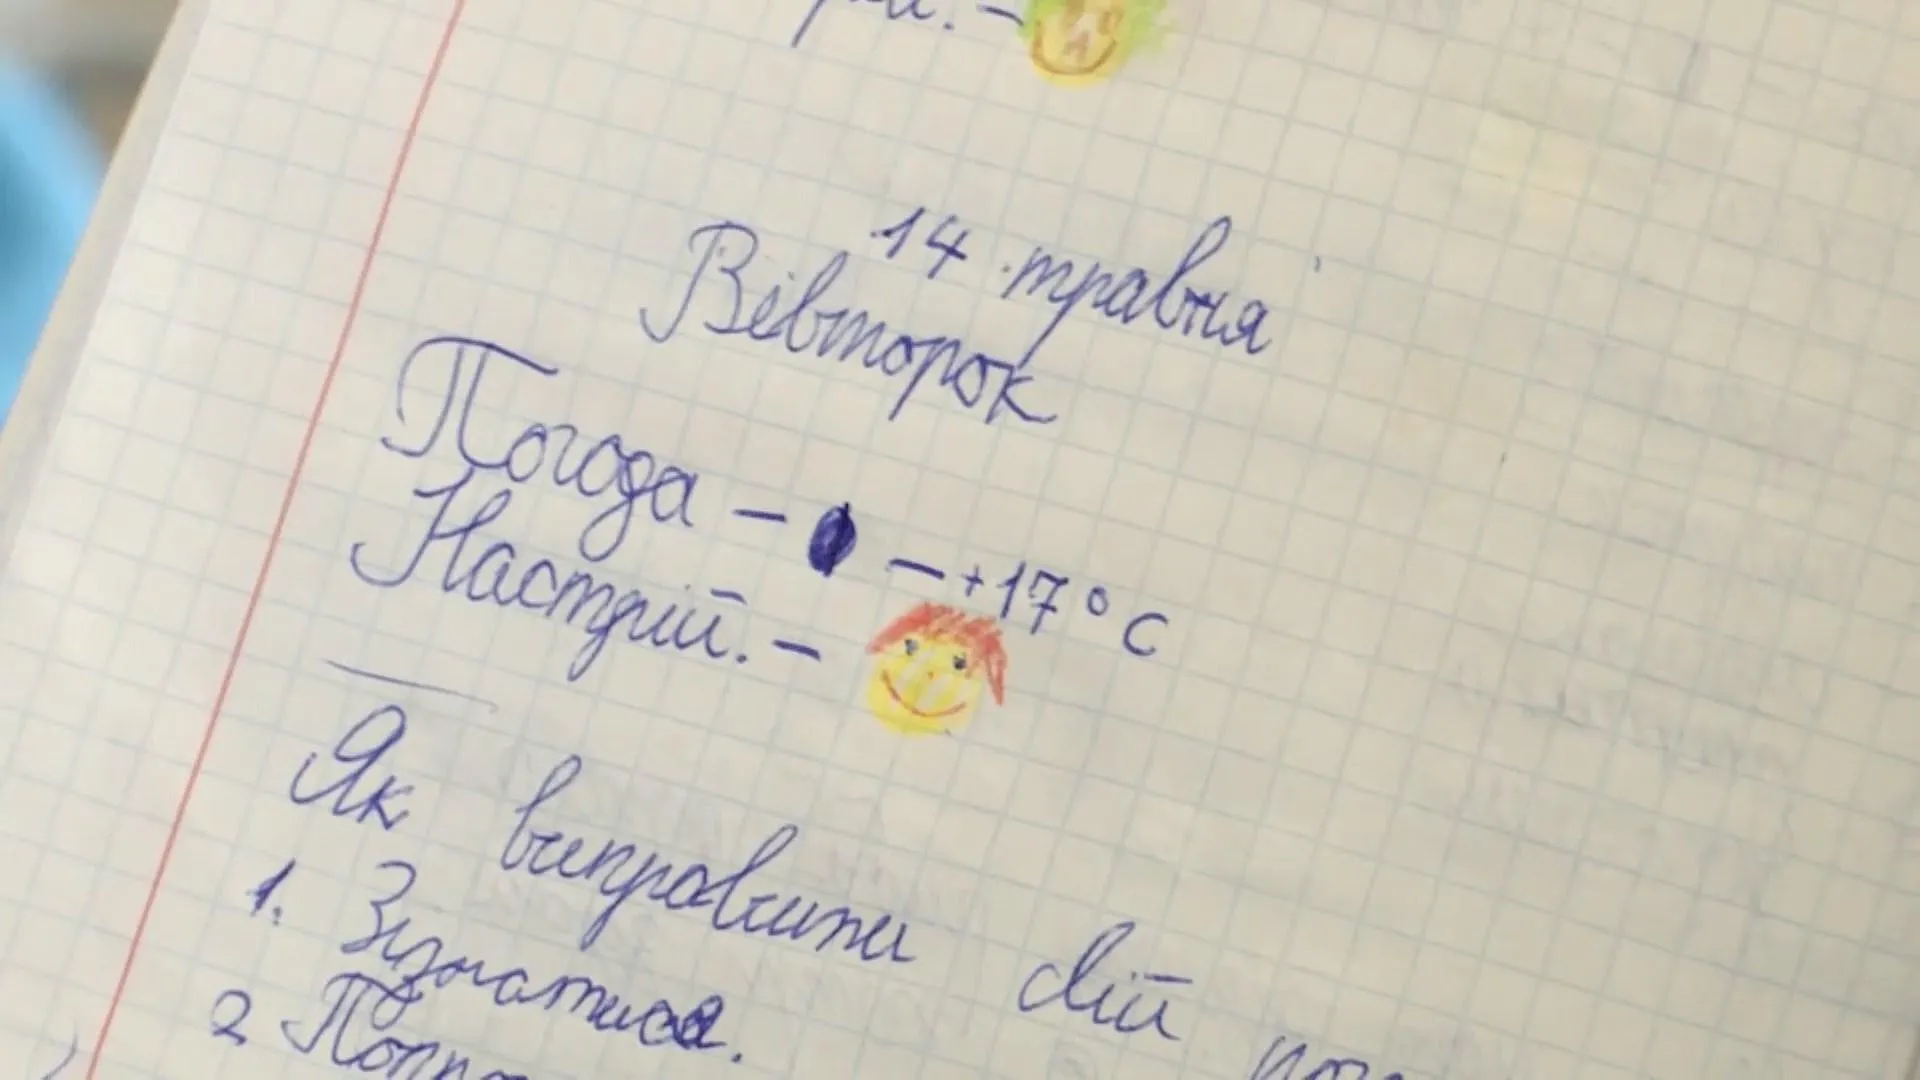 14 травня
Вівторок
Погода – – +17°С
Настрій. –
Як виправити свій
1. Зізнатися.
2